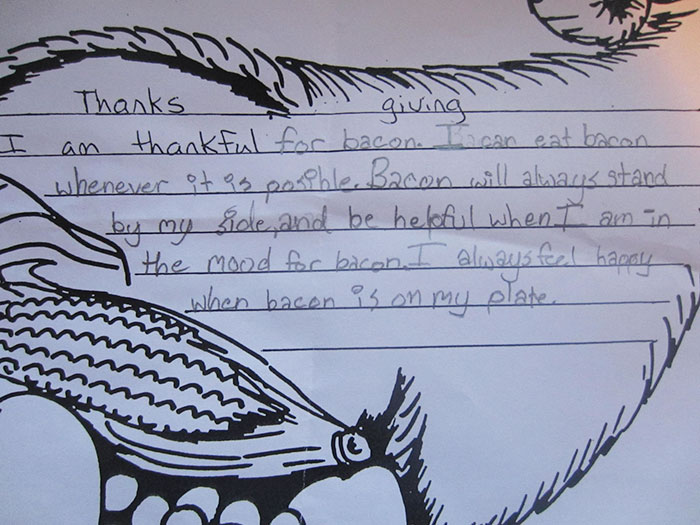 Thanks giving
I am thankful for bacon. I can eat bacon
whenever it is posible. Bacon will always stand
by my side, and be helpful when I am in
the mood for bacon. I always feel happy
when bacon is on my plate.